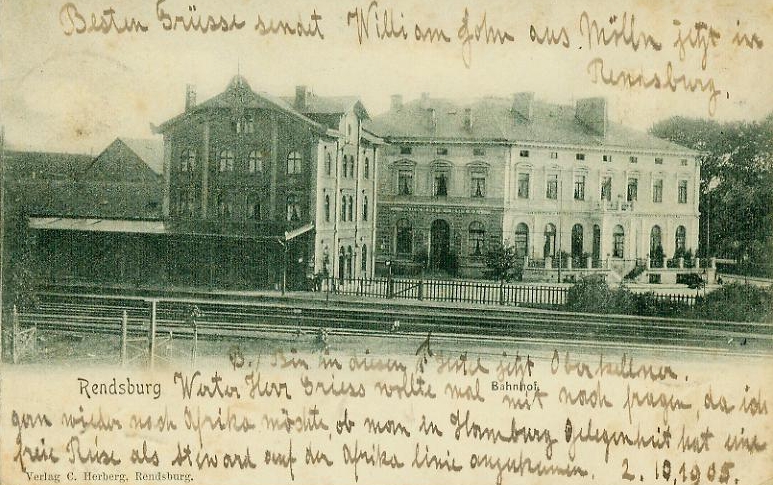 Besten Grüsse sendet William John aus Mölln jetzt in
Rendsburg.
B./ Bin in diesen Hotel jetzt Oberkellner.
Rendsburg
Bahnhof.
Werter Herr wollte mal mit noch fragen, da ich
gern wieder nach Afrika möchte, ob man in Hamburg Gelegenheit hat eine
freie Reise als steward auf der Afrika linie anzukumen. 2.10.1905.
Verlag C. Herberg, Rendsburg.